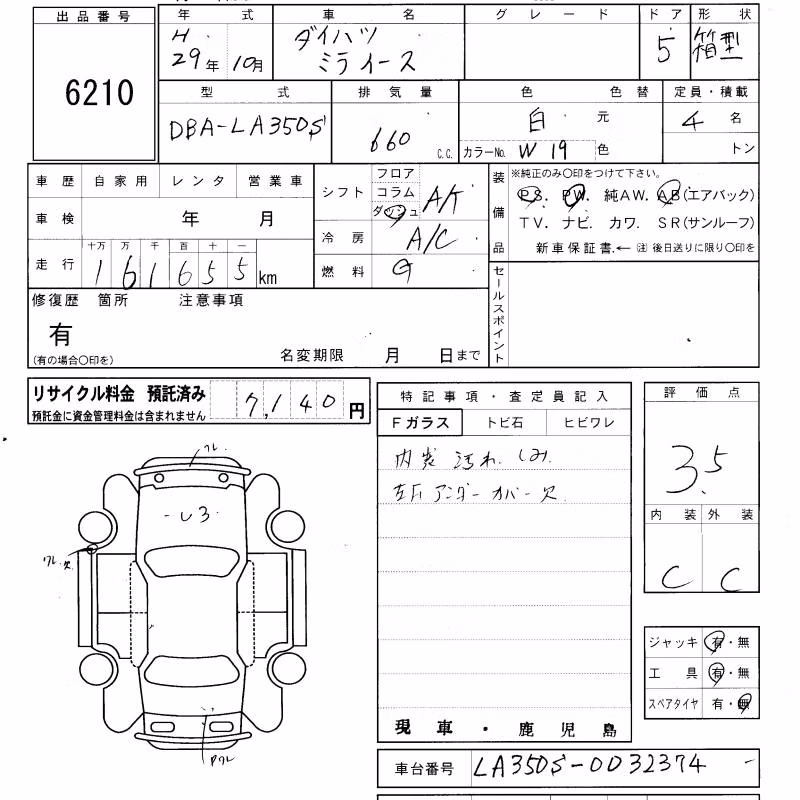 出品番号
6210
年 式 車 名 グレード ドア 形 状
H.
29年 10月 ダイハツ ミライース 5 箱型
型 式 排気量 色 色替 定員・積載
DBA-LA350S 660 C.C. 白 元 4 名
カラーNo. W19 色 トン
車歴 自家用 レンタ 営業車
車検 年 月
走行 十万 万 千 百 十 一
161655 km
シフト フロア コラム ダッシュ A/T
冷房 A/C
燃料 G
装備品 ※純正のみ○印をつけて下さい。
PS. PW. 純AW. AB(エアバック)
TV. ナビ. カワ. SR(サンルーフ)
新車保証書.← 注 後日送りに限り○印を
セールスポイント
修復歴 箇所 注意事項
有
(有の場合○印を)
名変期限 月 日まで
リサイクル料金 預託済み
預託金に資金管理料金は含まれません
7,140 円
ワレ.
-し3.
ワレ.欠
Pワレ
特記事項・査定員記入
Fガラス トビ石 ヒビワレ
内装 汚れ. しみ.
左F アンダーカバー欠
現車・鹿児島
評価点
3.5
内装 外装
C C
ジャッキ 有・無
工具 有・無
スペアタイヤ 有・無
車台番号 LA350S-0032374